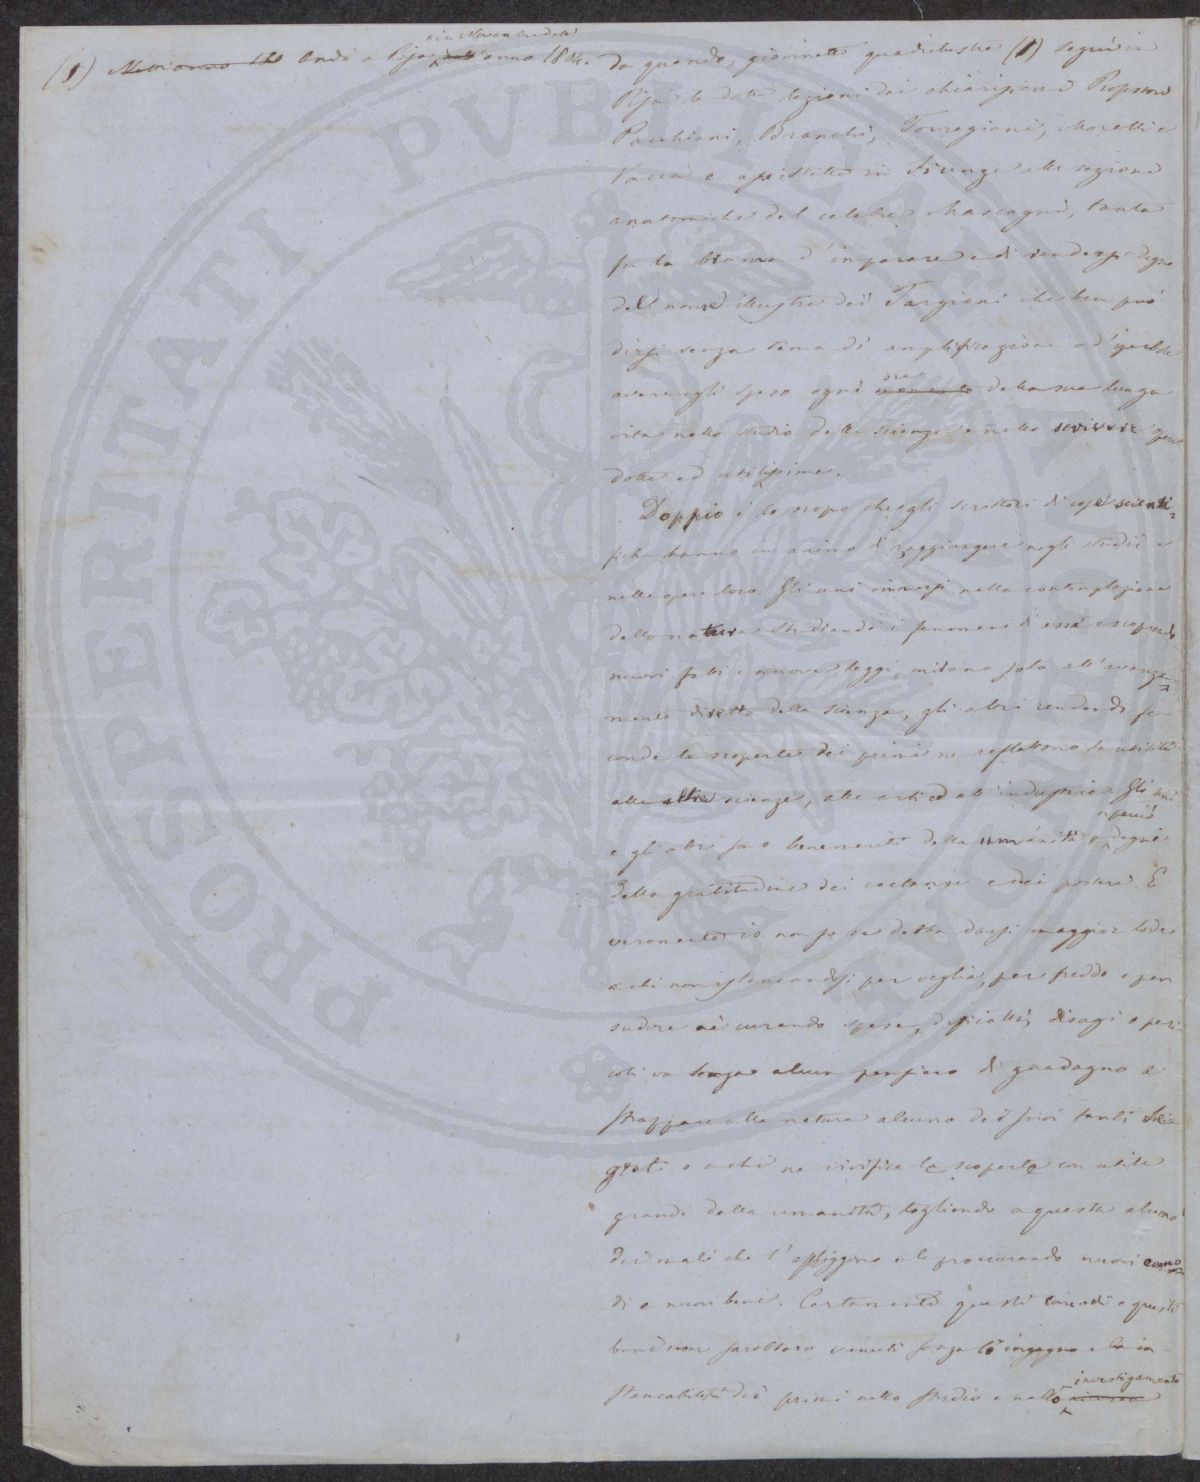 (1) Nell'anno 180 Andò a Pisa nell' anno 1804.
in Novembre dell'
da quando, giovinetto quadrilustre (1) seguì in
Pisa le dotte lezioni dei chiarissimi Professori
Pacchiani, Branchi, Torregiani, Morelli e
Vaccà e assistette in Firenze alle lezioni
anatomiche del celebre Mascagni, tanta
fu la brama d'imparare e di rendersi degno
del nome illustre dei Targioni che ben può
dirsi senza tema di amplificazione o d'iperbole
avere egli speso ogni momento della sua lunga
ora
vita nello studio delle scienze e nello scrivere opere
dotte ed utilissime.
Doppio è lo scopo che gli scrittori di cose scienti=
fiche hanno in animo di raggiungere negli studii e
nelle opere loro. Gli uni immersi nella contemplazione
della natura studiando i fenomeni di essa e scoprendo
nuovi fatti e nuove leggi, mirano solo all'avanza=
mento diretto della scienza, gli altri rendendo fe-
conde le scoperte dei primi ne riflettono la utilità
alle altre scienze, alle arti ed all'industria. Gli uni
e gli altri sono benemeriti della umanità e degni
perciò
della gratitudine dei coetanei e dei posteri. E
veramente io non so se debba darsi maggior lode
a chi non istancandosi per veglia, per freddo e per
sudore nè curando spese, difficoltà, disagi o peri-
coli va senza alcun pensiero di guadagno a
strappare alla natura alcuno dei suoi tanti se=
greti o a chi ne vivifica le scoperte con utile
grande della umanità, togliendo a questa alcuno
dei mali che l'affliggono o le procurando nuovi como=
di e nuovi beni. Certamente questi comodi e questi
beni non sarebbero venuti senza lo ingegno e la in-
stancabilità dei primi nello studio e nello ricerca
investigamento